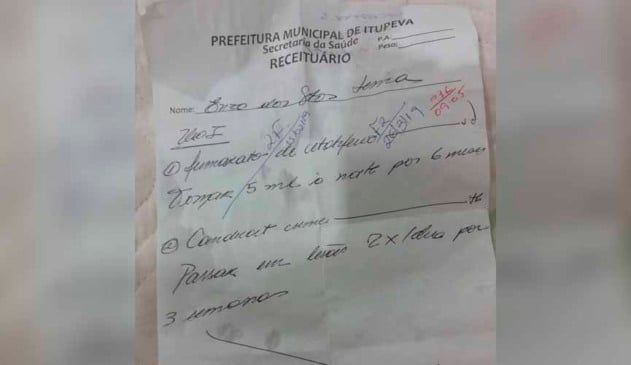 PREFEITURA MUNICIPAL DE ITUPEVA
Secretaria da Saúde
P.A.
Peso:
RECEITUÁRIO
Nome: Enzo dos Stos
Uso I
① fumarato de cetotifeno
Tomar 5 ml à noite por 6 meses
② Candicort creme
Passar em lesão 2x/dia por
3 semanas